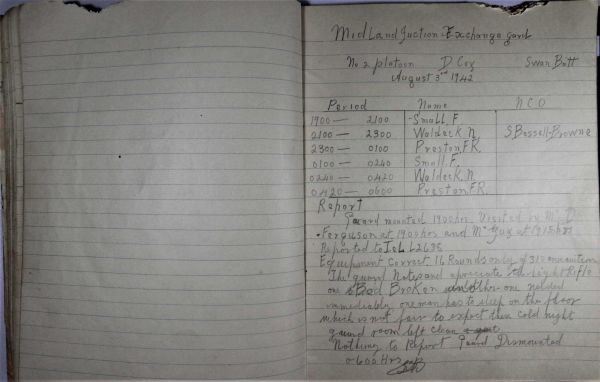 MidLand Juction Exchange gard
No 2 platoon D Coy Swan Batt
August 3rd 1942
Period Name NCO
1900 — 2100 Small F.
2100 — 2300 Waldeck N S Bessell-Browne
2300 — 0100 Preston F.R.
0100 — 0240 Small F.
0240 — 0420 Waldeck N
0420 — 0600 Preston F.R.
Report
Guard mounted 1900 hrs Visited by Mr D
Ferguson at 1900 hrs and Mr Guy at 1915 hrs
Reported to L2698
Equipment Correct 16 Rounds only of 310 amunition
The guard Notes and apreciate Rifle
one Bed Broken another one neded
immediably one man has to sleep on the floor
which is not fair to expect then cold night
guard room left clean
Nothing to Report Guard Dismounted
0600 Hrs